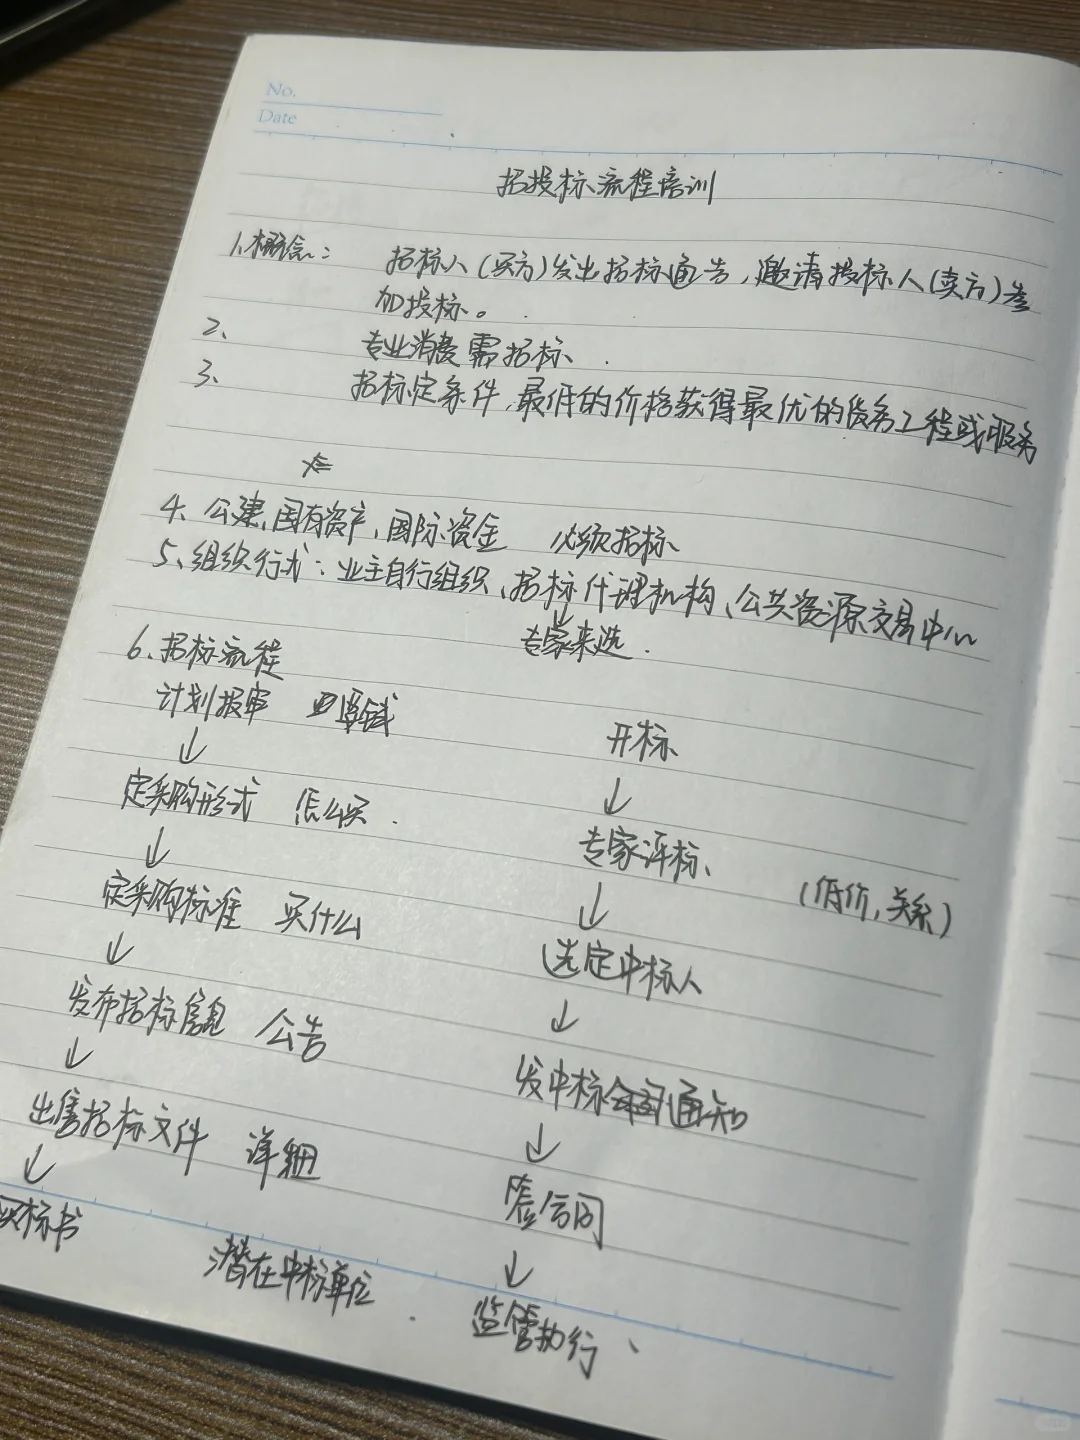 No.
Date
招投标流程培训
1.概念: 招标人(买方)发出招标通告,邀请投标人(卖方)参
加投标。
2、 专业消费需招标.
3、 招标定条件,最低的价格获得最优的货物工程或服务
4、公建、国有资产,国际资金 必须招标
5、组织行式:业主自行组织、招标代理机构、公共资源交易中心
↓
专家来选.
6、招标流程
计划报审 要钱
↓
定采购形式 怎么买.
↓
定采购标准 买什么
↓
发布招标信息 公告
↓
出售招标文件 详细
↓
买标书 潜在中标单位.
开标
↓
专家评标 (低价,关系)
↓
选定中标人
↓
发中标通知
↓
签合同
↓
监管执行、